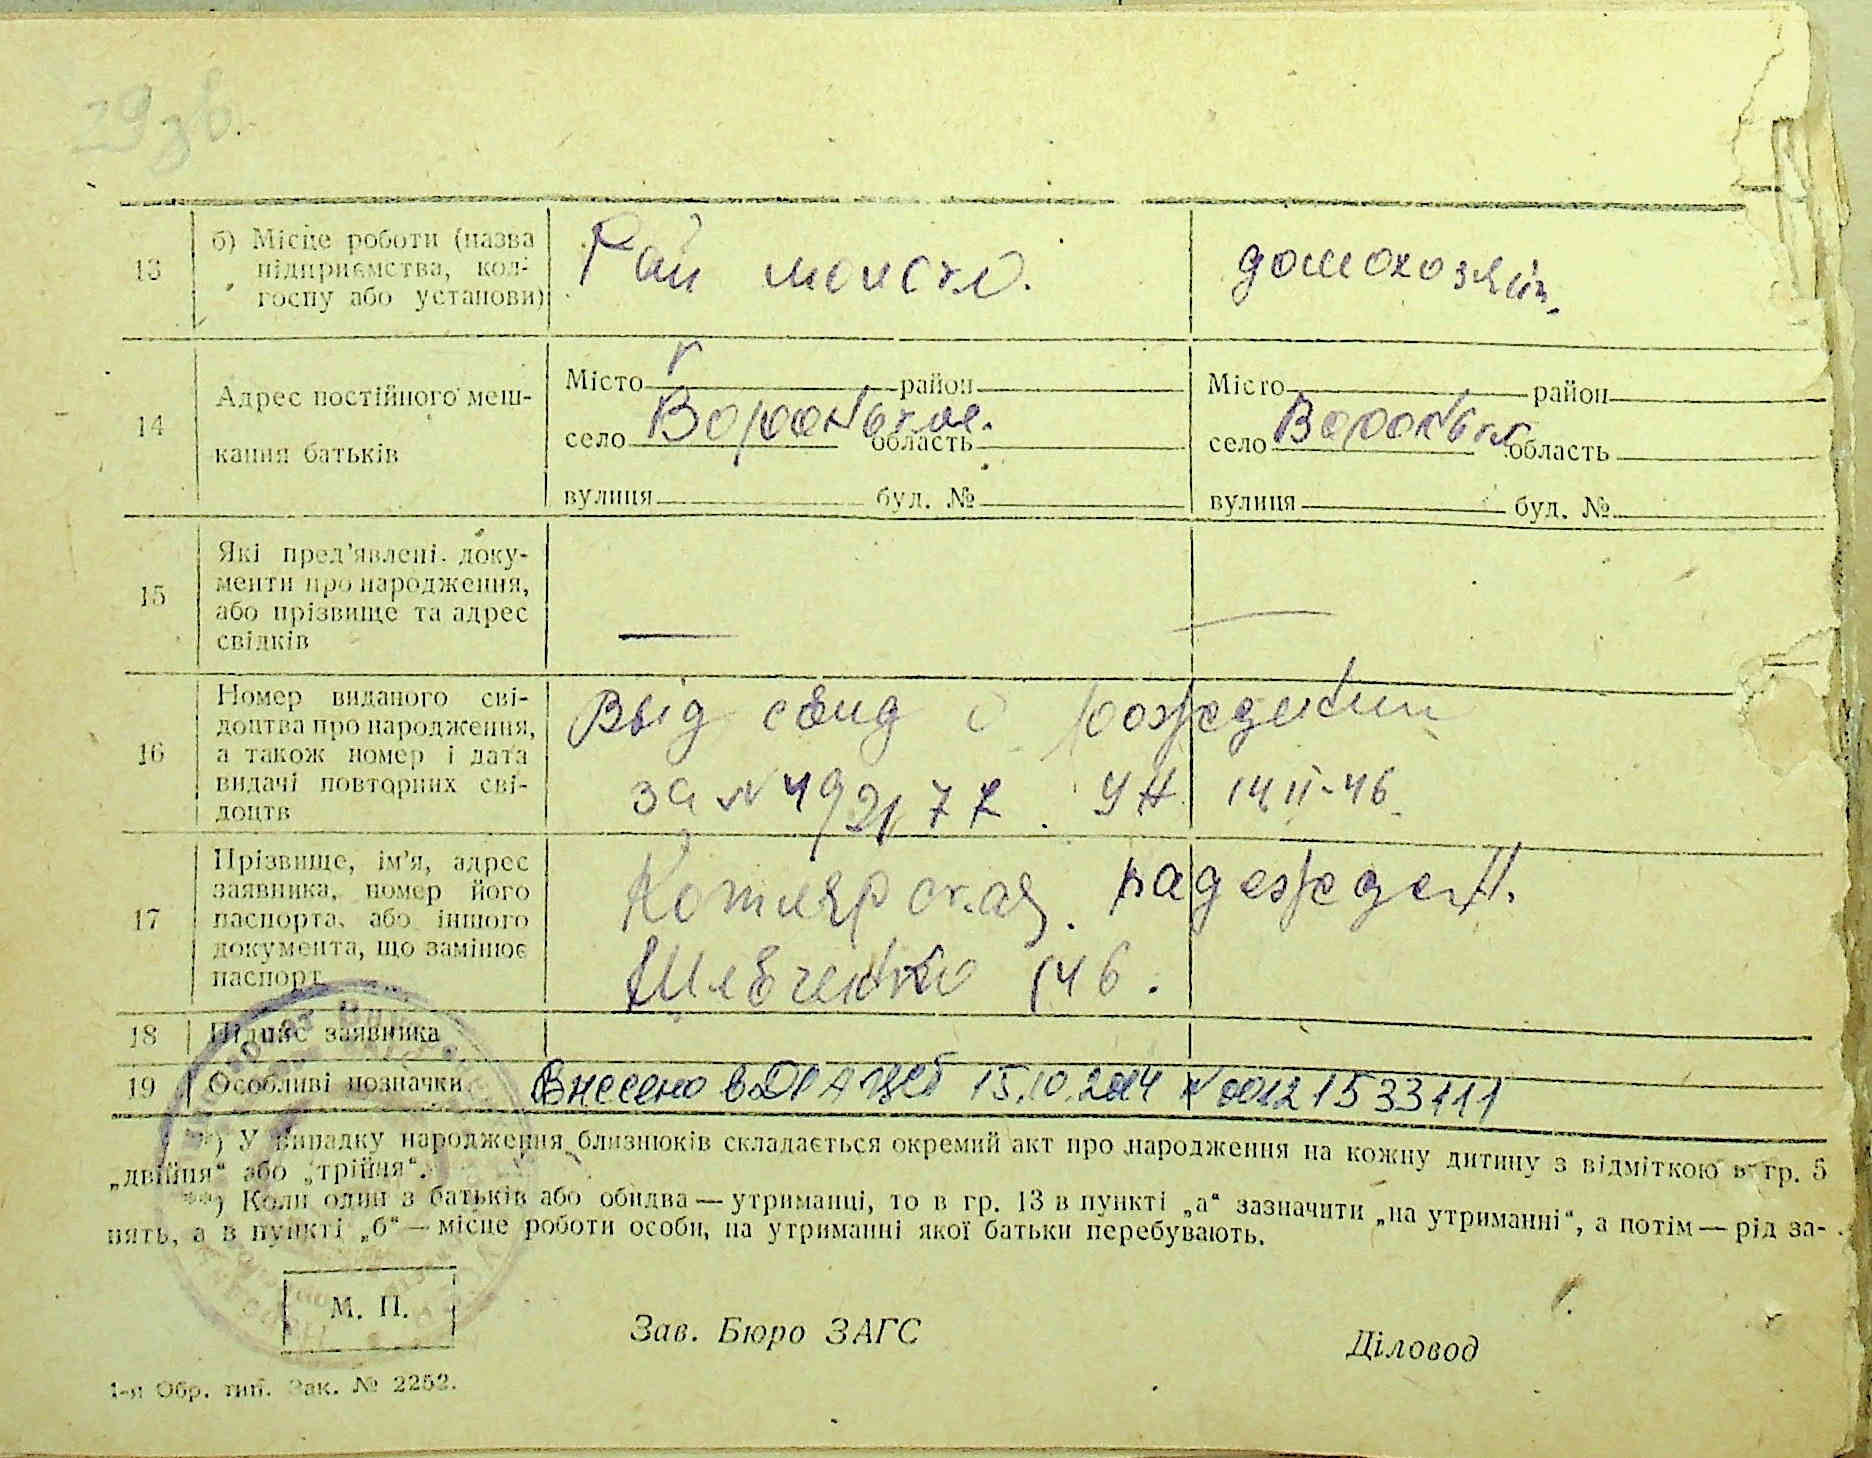 29 зв.
13 б) Місце роботи (назва підприємства, колгоспу або установи) Рай домохозяй.
14 Адрес постійного мешкання батьків
Місто район Місто район
село область село область
вулиця буд. № вулиця буд. №
15 Які пред'явлені документи про народження, або прізвище та адрес свідків — —
16 Номер виданого свідоцтва про народження, а також номер і дата видачі повторних свідоцтв
Выд свид о рождении
за № УН 14 II-46
17 Прізвище, ім'я, адрес заявника, номер його паспорта, або іншого документа, що замінює паспорт
Котлярская
Шевченко 146.
18 Підпис заявника
19 Особливі позначки Внесено в ДРАЦСГ 15.10.2014 № 00121533111
*) У випадку народження близнюків складається окремий акт про народження на кожну дитину з відміткою в гр. 5
„двійня“ або „трійня“.
**) Коли один з батьків або обидва — утриманці, то в гр. 13 в пункті „а“ зазначити „на утриманні“, а потім — рід за-
нять, а в пункті „б“ — місце роботи особи, на утриманні якої батьки перебувають.
М. П.
Зав. Бюро ЗАГС
Діловод
1-я Обр. тип. Зак. № 2252.